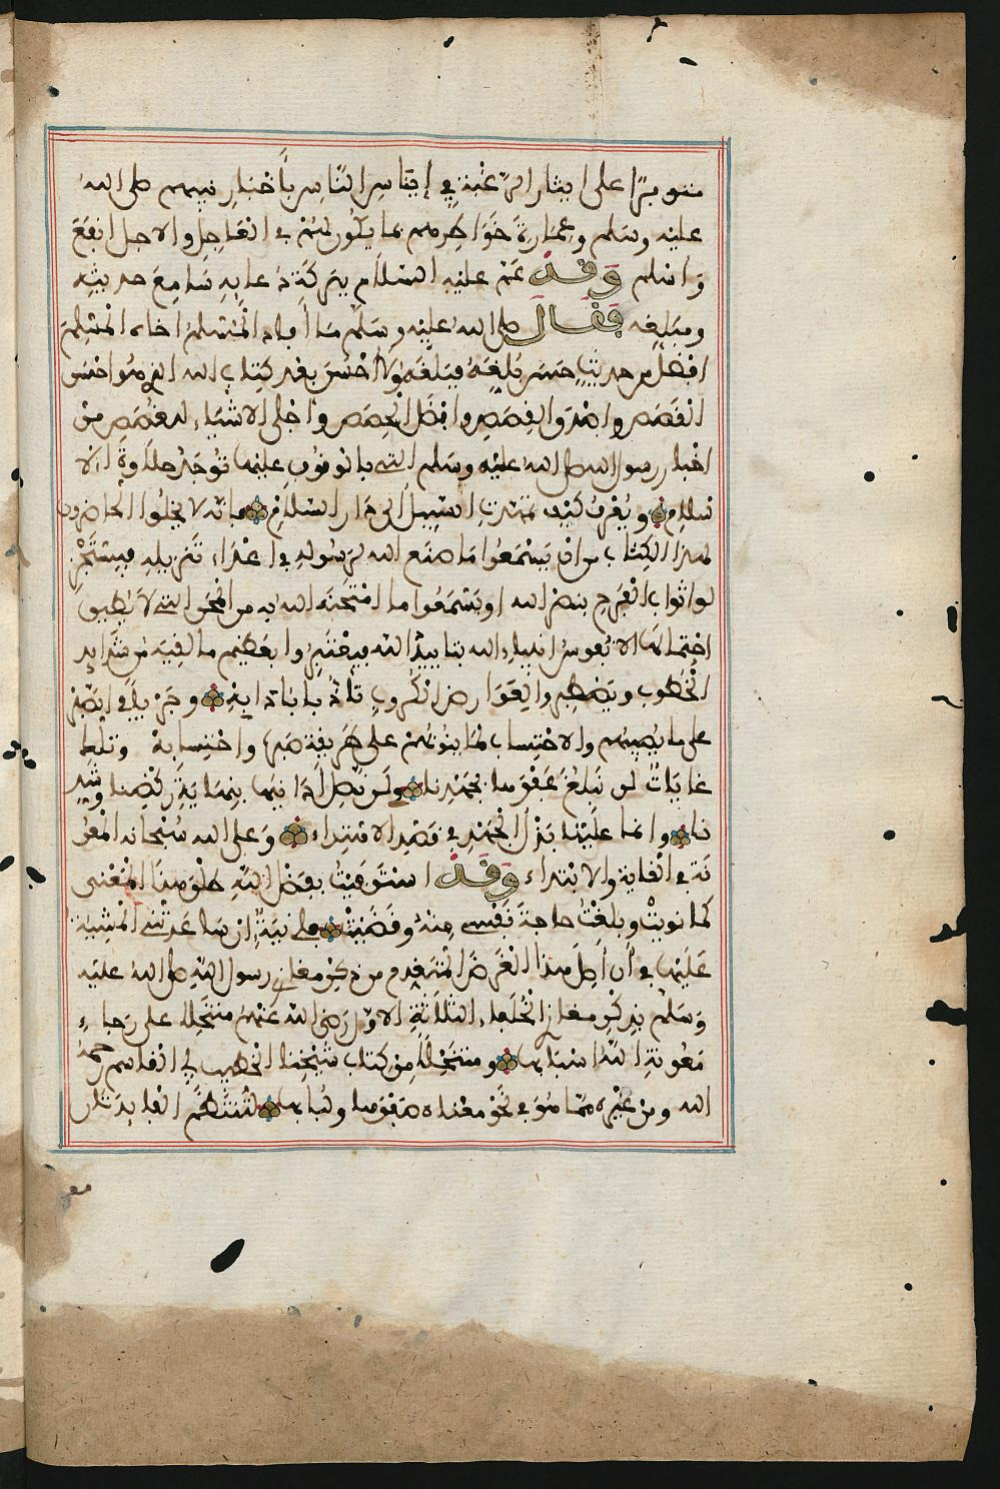 متوفرا على ايثار الرغبة في إيناس الناس بأخبار نبيهم صلى الله
عليه وسلم وعمارة خواطرهم بما يكون لهم في العاجل والاجل انفع
واسلم وقد عم عليه السلام ببركة دعايه سامع حديثه
ومبلغه فقال صلى الله عليه وسلم ما أفاد المسلم اخاه المسلم
افضل من حديث حسن بلغه فبلغه ولا أحسن بعد كتاب الله الذي هو احسن
القصص واصدق القصص وافضل الحصص واجلى الاشياء لغصص من
اخبار رسول الله صلى الله عليه وسلم التي بالوقوف عليها توجد حلاوة الا
سلام ويعرف كيف تمهدت السبيل الى دار السلام فانه لا يخلوا الحاضرون
لهذا الكتاب من ان يسمعوا ما صنع الله لرسوله في اعداء تنزيله فيستجز
لوا ثواب الفرح بنصر الله او يسمعوا ما امتحنه الله به من المحن التي لا يطيق
احتمالها الا نفوس انبياء الله بتاييد الله فيعتبروا بعظيم ما لقيه من شدايد
الخطوب ويصطبروا لعوارض الكروب تادبا بادابه وجريا في الصبر
على ما يصيبهم والاحتساب لما ينوبهم على طريقة صبره واحتسابه وتلك
غايات لن نبلغ عفوها بجهدنا ولن نصل ادانيها بنهاية ركضنا وشد
نا وانما علينا بذل الجهد في قصد الاهتداء وعلى الله سبحانه المعو
نة في الغاية والابتداء وقد استوفيت بفضل الله هذا المعنى
كما نويت وبلغت حاجة نفسي منه وقضيت ولي نية ان ساعدتني المشيئة
عليها في أن اصل هذا الغرض المتقدم من ذكر مغازي رسول الله صلى الله عليه
وسلم بذكر مغازي الخلفاء الثلاثة الاول رضي الله عنهم منتحلا على رجاء
معونة الله اسبابها ومنتخلا من كتاب شيخنا الخطيب ابي القاسم رحمه
الله ومن غيره مما هو في نحو معناه صفوها ولبابها لتنتظم الفايدتان
مع